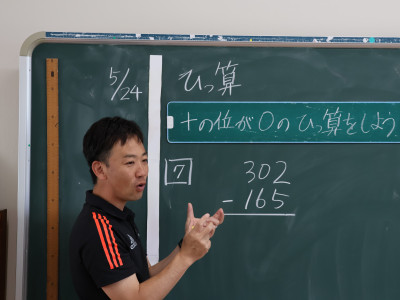 5/24
ひっ算
十の位が0のひっ算をしよう
7
302
- 165